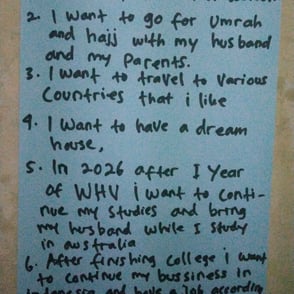 2. I want to go for Umrah
and hajj with my husband
and my parents.
3. I want to travel to various
countries that i like
4. I want to have a dream
house,
5. In 2026 after I Year
of WHV i want to conti-
nue my studies and bring
my husband while I study
in australia
6. After finishing college i want
to continue my bussiness in
and have a Job according